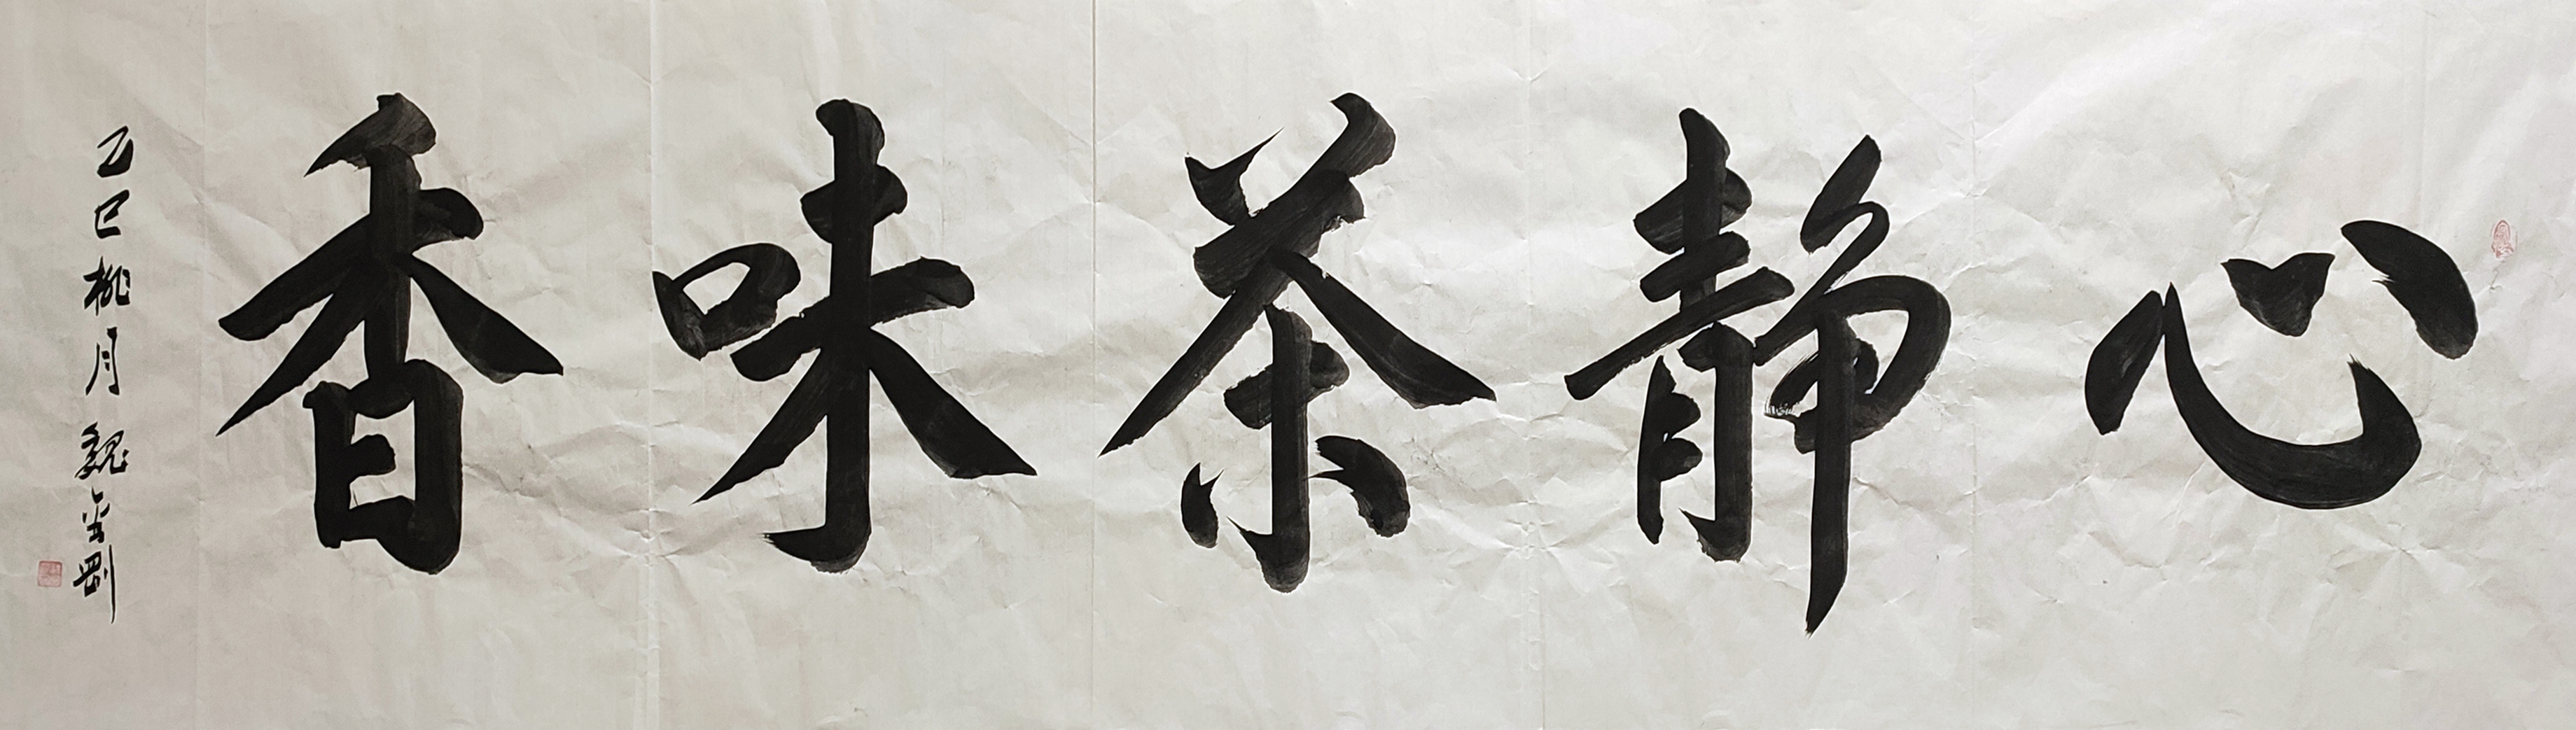 心静茶味香
乙巳桃月魏金刚